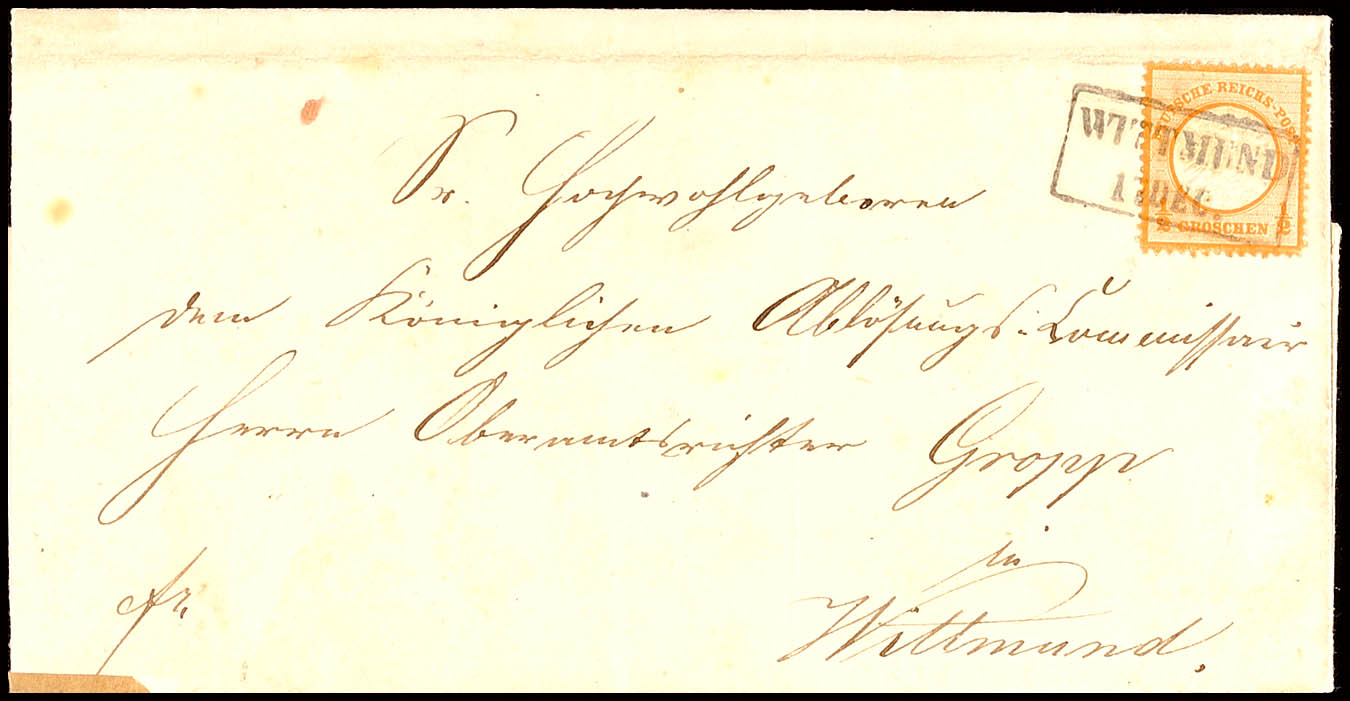 Sr. Hochwohlgeboren
dem Königlichen Ablösungs-Commissair
Herrn Oberamtsrichter Gropp
in
Wittmund.
fr.
DEUTSCHE REICHS-POST
½ GROSCHEN ½
WITTMUND
DEC.